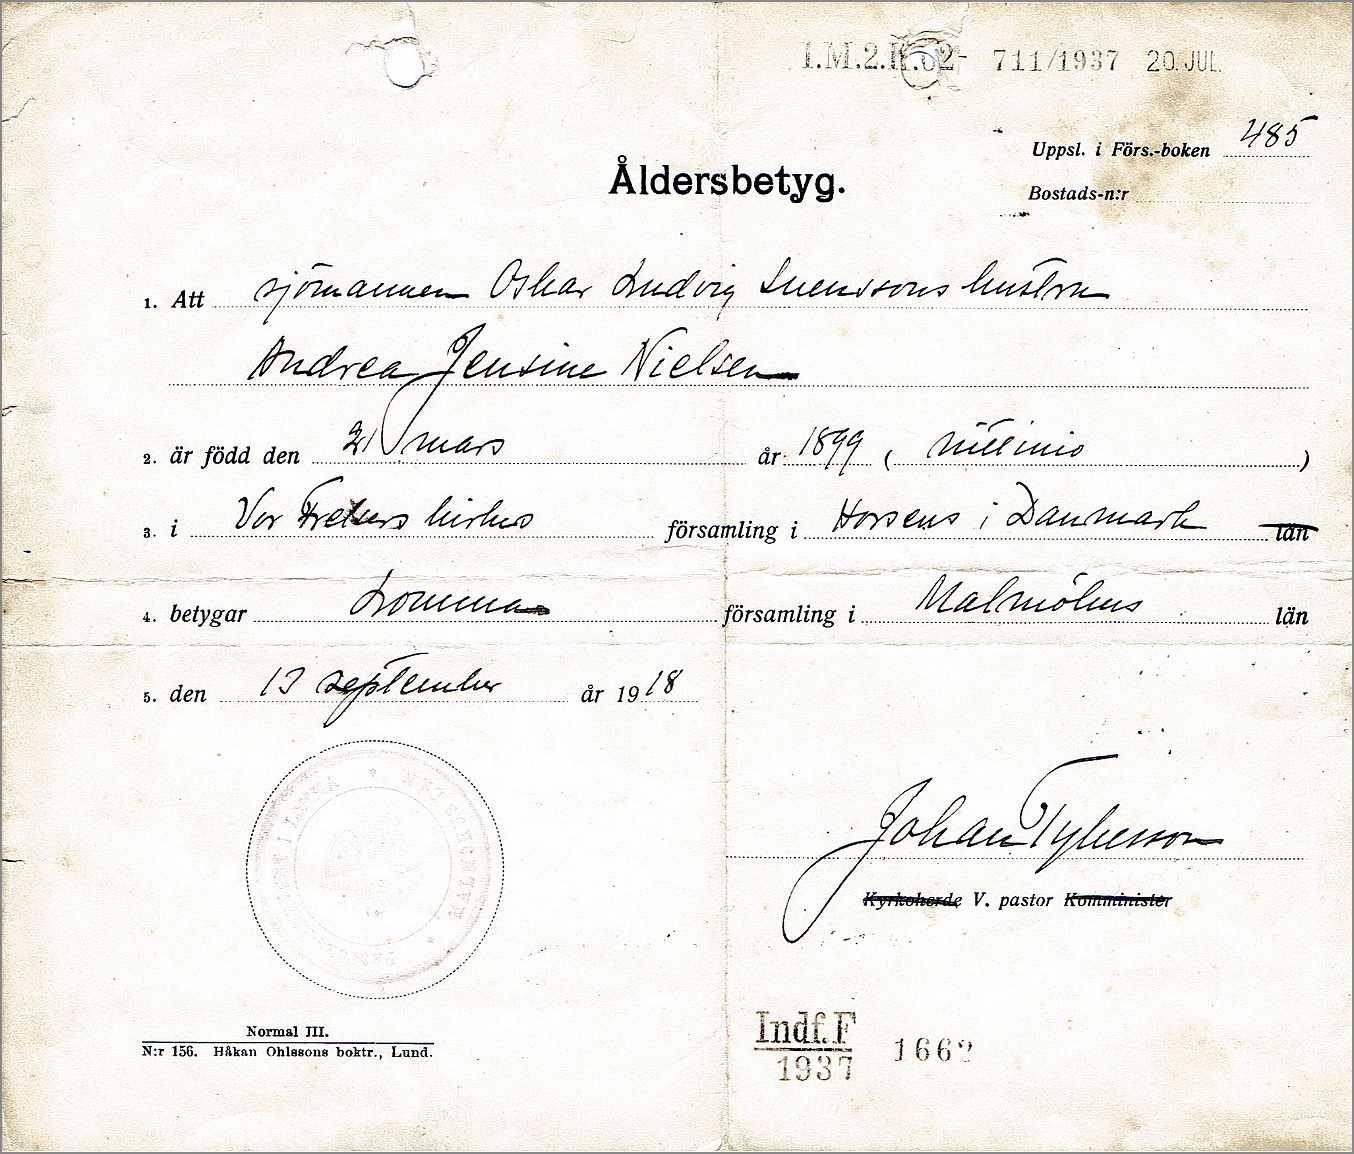 I.M.2.K.62- 711/1937 20. JUL.
Uppsl. i Förs.-boken 485
Åldersbetyg.
Bostads-n:r
1. Att sjömannen Oskar Ludvig Svenssons hustru
Andrea Jensine Nielsen
2. är född den 21 mars år 1899 ( nittinio )
3. i Vor Frelsers kirkes församling i Horsens i Danmark län
4. betygar Lomma församling i Malmöhus län
5. den 13 september år 1918
Johan Tykesson
Kyrkoherde V. pastor Komminister
Normal III.
N:r 156. Håkan Ohlssons boktr., Lund.
Indf. F
1937 1662